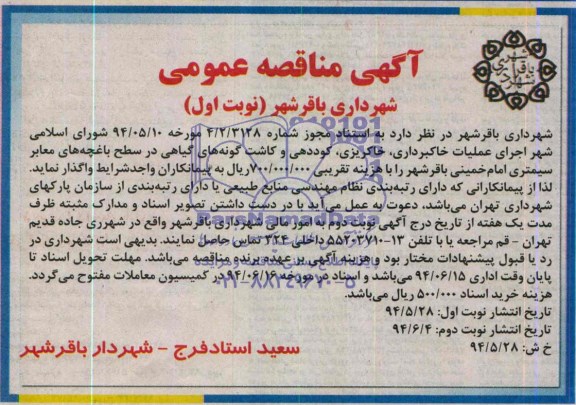 آگهی مناقصه عمومی
شهرداری باقرشهر (نوبت اول)
شهرداری باقرشهر در نظر دارد به استناد مجوز شماره ۴/۲/۳۱۲۸ مورخه ۹۴/۰۵/۱۰ شورای اسلامی
شهر اجرای عملیات خاکبرداری، خاکریزی، کوددهی و کاشت گونه‌های گیاهی در سطح باغچه‌های معابر
سیمتری امام‌خمینی باقرشهر را با هزینه تقریبی ۷۰۰/۰۰۰/۰۰۰ریال به پیمانکاران واجدشرایط واگذار نماید.
لذا از پیمانکارانی که دارای رتبه‌بندی نظام مهندسی منابع طبیعی یا دارای رتبه‌بندی از سازمان پارکهای
شهرداری تهران می‌باشد، دعوت به عمل می‌آید با در دست داشتن تصویر اسناد و مدارک مثبته ظرف
مدت یک هفته از تاریخ درج آگهی نوبت دوم به امور مالی شهرداری باقرشهر واقع در شهرری جاده قدیم
تهران - قم مراجعه یا با تلفن ۱۳-۵۵۲۰۳۷۱۰ داخلی ۳۲۴ تماس حاصل نمایند. بدیهی است شهرداری در
رد یا قبول پیشنهادات مختار بود و هزینه آگهی بر عهده برنده مناقصه می‌باشد. مهلت تحویل اسناد تا
پایان وقت اداری ۹۴/۰۶/۱۵ می‌باشد و اسناد در مورخه ۹۴/۰۶/۱۶ در کمیسیون معاملات مفتوح می‌گردد.
هزینه خرید اسناد ۵۰۰/۰۰۰ ریال می‌باشد.
تاریخ انتشار نوبت اول: ۹۴/۵/۲۸
تاریخ انتشار نوبت دوم: ۹۴/۶/۴
خ ش: ۹۴/۵/۲۸
سعید استادفرج - شهردار باقرشهر
ParsNamadData
۰۲۱-۸۸۳۴۹۶۷۰-۵